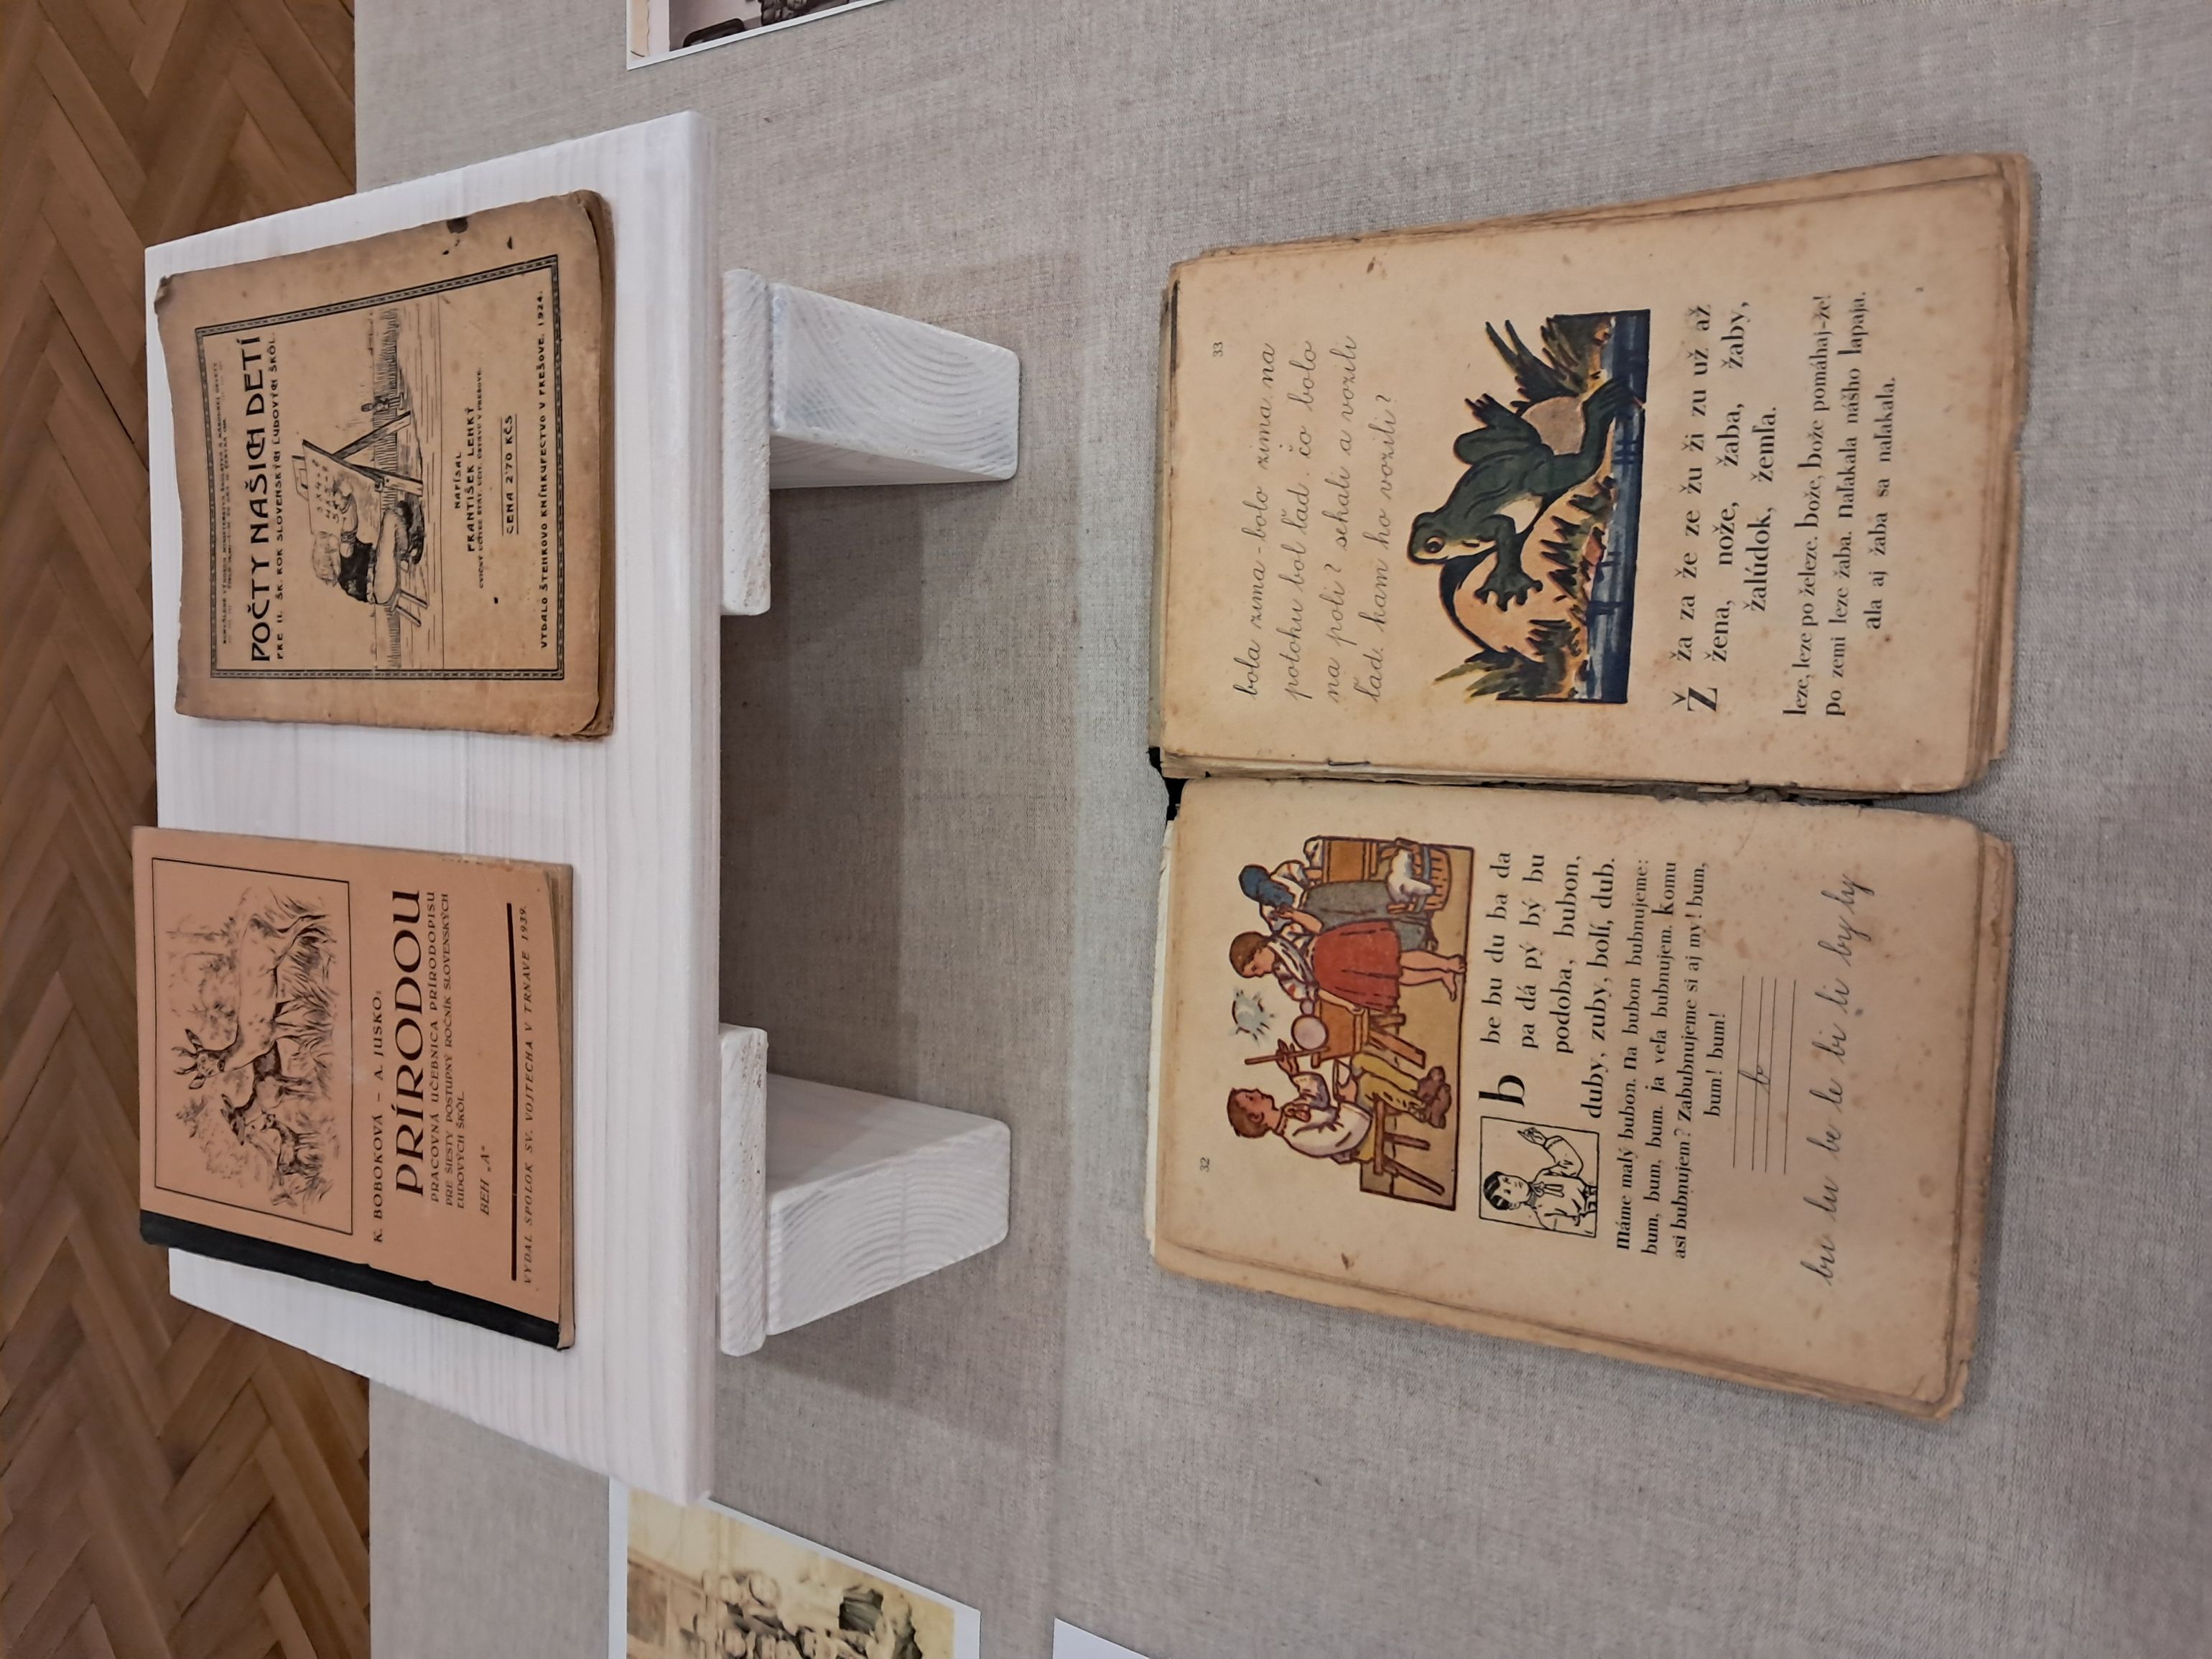 K. BOBOKOVÁ – A. JUSKO:
PRÍRODOU
PRACOVNÁ UČEBNICA PRÍRODOPISU
PRE ŠIESTY POSTUPNÝ ROČNÍK SLOVENSKÝCH
ĽUDOVÝCH ŠKÔL
BEH „A“
VYDAL SPOLOK SV. VOJTECHA V TRNAVE 1939.
POČTY NAŠICH DETÍ
PRE II. ŠK. ROK SLOVENSKÝCH ĽUDOVÝCH ŠKÔL.
NAPÍSAL
FRANTIŠEK LEHKÝ
CENA 2'70 KČS
VYDALO ŠTEHROVO KNÍHKUPECTVO V PREŠOVE. 1924.
32
b be bu du ba da
pa dá pý bý bu
podoba, bubon,
duby, zuby, bolí, dub.
máme malý bubon. na bubon bubnujeme:
bum, bum, bum. ja veľa bubnujem. komu
asi bubnujem? zabubnujeme si aj my! bum,
bum! bum!
b
bu lu be le bi li by ly
33
bola zima-bolo zima. na
potoku bol ľad. čo bolo
na poli? sekali a vozili
ľad. kam ho vozili?
Ž ža za že ze žu ži zu už až
žena, nože, žaba, žaby,
žalúdok, žemľa.
leze, leze po železe. bože, bože pomáhaj-že!
po zemi leze žaba. naľakala nášho lapaja.
ala aj žaba sa naľakala.